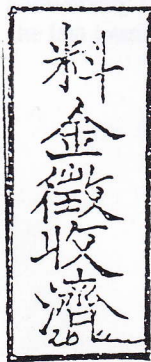 料金徴収濟